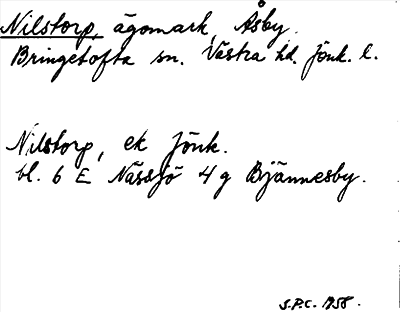 Nilstorp, ägomark, Åsby.
Bringetofta sn. Västra hd. Jönk. l.
Nilstorp, ek Jönk.
bl. 6 E Nässjö 4 g Bjännesby.
S.P.C. 1958.